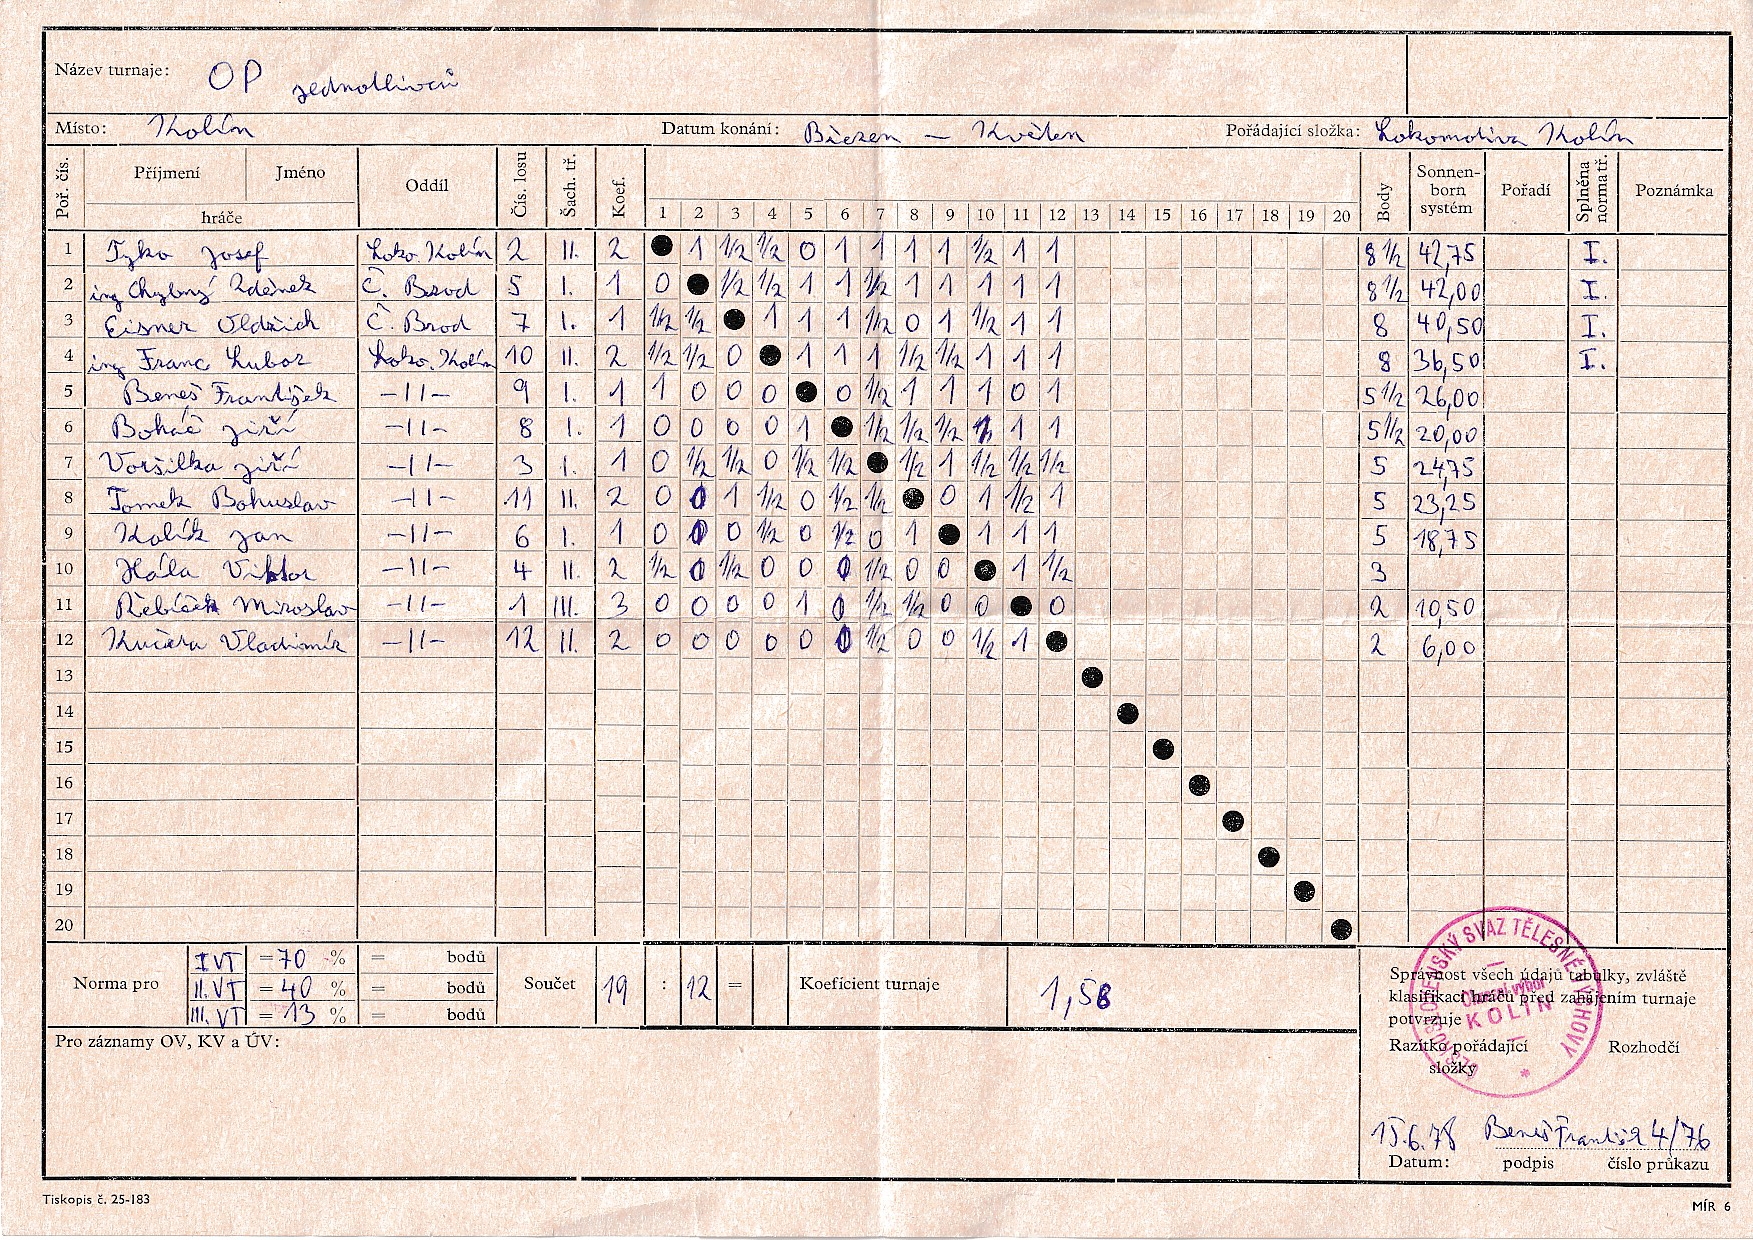 Název turnaje: OP jednotlivců
Místo: Kolín Datum konání: Březen — Květen Pořádající složka: Lokomotiva Kolín
Poř. čís. Příjmení Jméno hráče Oddíl Čís. losu Šach. tř. Koef. 1 2 3 4 5 6 7 8 9 10 11 12 13 14 15 16 17 18 19 20 Body Sonnen-born systém Pořadí Splněna norma tř. Poznámka
1 Tyko Josef Loko. Kolín 2 II. 2 ● 1 1/2 1/2 0 1 1 1 1 1/2 1 1 8 1/2 42,75 I.
2 ing Chybný Zdeněk Č. Brod 5 I. 1 0 ● 1/2 1/2 1 1 1/2 1 1 1 1 1 8 1/2 42,00 I.
3 Eisner Oldřich Č. Brod 7 I. 1 1/2 1/2 ● 1 1 1 1/2 0 1 1/2 1 1 8 40,50 I.
4 ing Franc Lubor Loko. Kolín 10 II. 2 1/2 1/2 0 ● 1 1 1 1/2 1/2 1 1 1 8 36,50 I.
5 Beneš František —II— 9 I. 1 1 0 0 0 ● 0 1/2 1 1 1 0 1 5 1/2 26,00
6 Boháč Jiří —II— 8 I. 1 0 0 0 0 1 ● 1/2 1/2 1/2 1 1 1 5 1/2 20,00
7 Voršilka Jiří —II— 3 I. 1 0 1/2 1/2 0 1/2 1/2 ● 1/2 1 1/2 1/2 1/2 5 24,75
8 Tomek Bohuslav —II— 11 II. 2 0 0 1 1/2 0 1/2 1/2 ● 0 1 1/2 1 5 23,25
9 Kolík Jan —II— 6 I. 1 0 0 0 1/2 0 1/2 0 1 ● 1 1 1 5 18,75
10 Hála Viktor —II— 4 II. 2 1/2 0 1/2 0 0 0 1/2 0 0 ● 1 1/2 3
11 Řebíček Miroslav —II— 1 III. 3 0 0 0 0 1 0 1/2 1/2 0 0 ● 0 2 10,50
12 Kučera Vladimír —II— 12 II. 2 0 0 0 0 0 0 1/2 0 0 1/2 1 ● 2 6,00
13
14
15
16
17
18
19
20
Norma pro I VT = 70 % = bodů
II. VT = 40 % = bodů
III. VT = 13 % = bodů
Součet 19 : 12 = Koeficient turnaje 1,58
Správnost všech údajů tabulky, zvláště
klasifikaci hráčů před zahájením turnaje
potvrzuje
Razítko pořádající složky Rozhodčí
ČESKOSLOVENSKÝ SVAZ TĚLESNÉ VÝCHOVY
Okresní výbor
KOLÍN
Pro záznamy OV, KV a ÚV:
15.6.78 Beneš František 4/76
Datum: podpis číslo průkazu
Tiskopis č. 25-183 MÍR 6